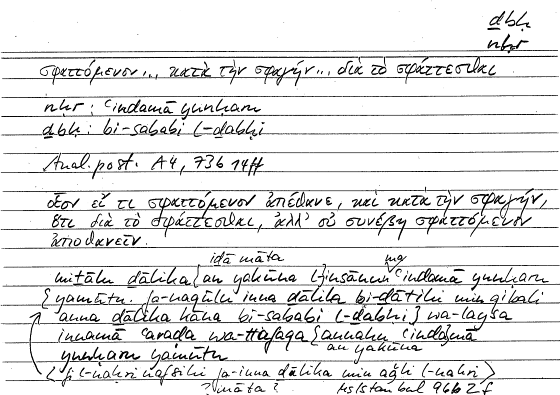 ḏbḥ
nḥr
σφαττόμενον... κατὰ τὴν σφαγήν... διὰ τὸ σφάττεσθαι
nḥr : ʿindamā yunḥaru
ḏbḥ : bi-sababi l-ḏabḥi
Anal. post. A 4, 73b 14ff
οἷον εἴ τι σφαττόμενον ἀπέθανε, καὶ κατὰ τὴν σφαγήν,
ὅτι διὰ τὸ σφάττεσθαι, ἀλλ' οὐ συνέβη σφαττόμενον
ἀποθανεῖν.
iḏā māta
miṯālu ḏālika {an yakūna l-}insānun ʿindamā yunḥaru
{yamūtu. fa-naqūlu inna ḏālika bi-ḏātihi min qibali
anna ḏālika kāna bi-sababi l-ḏabḥi} wa-laysa
innamā ʿaraḍa wa-ttafaqa {annahu ʿinda}mā
an yakūna
yunḥaru yamūtu
⟨fī l-naḥri nafsihi fa-inna ḏālika min aǧli l-naḥri⟩
? māta ? Hs Istanbul 966 2 f